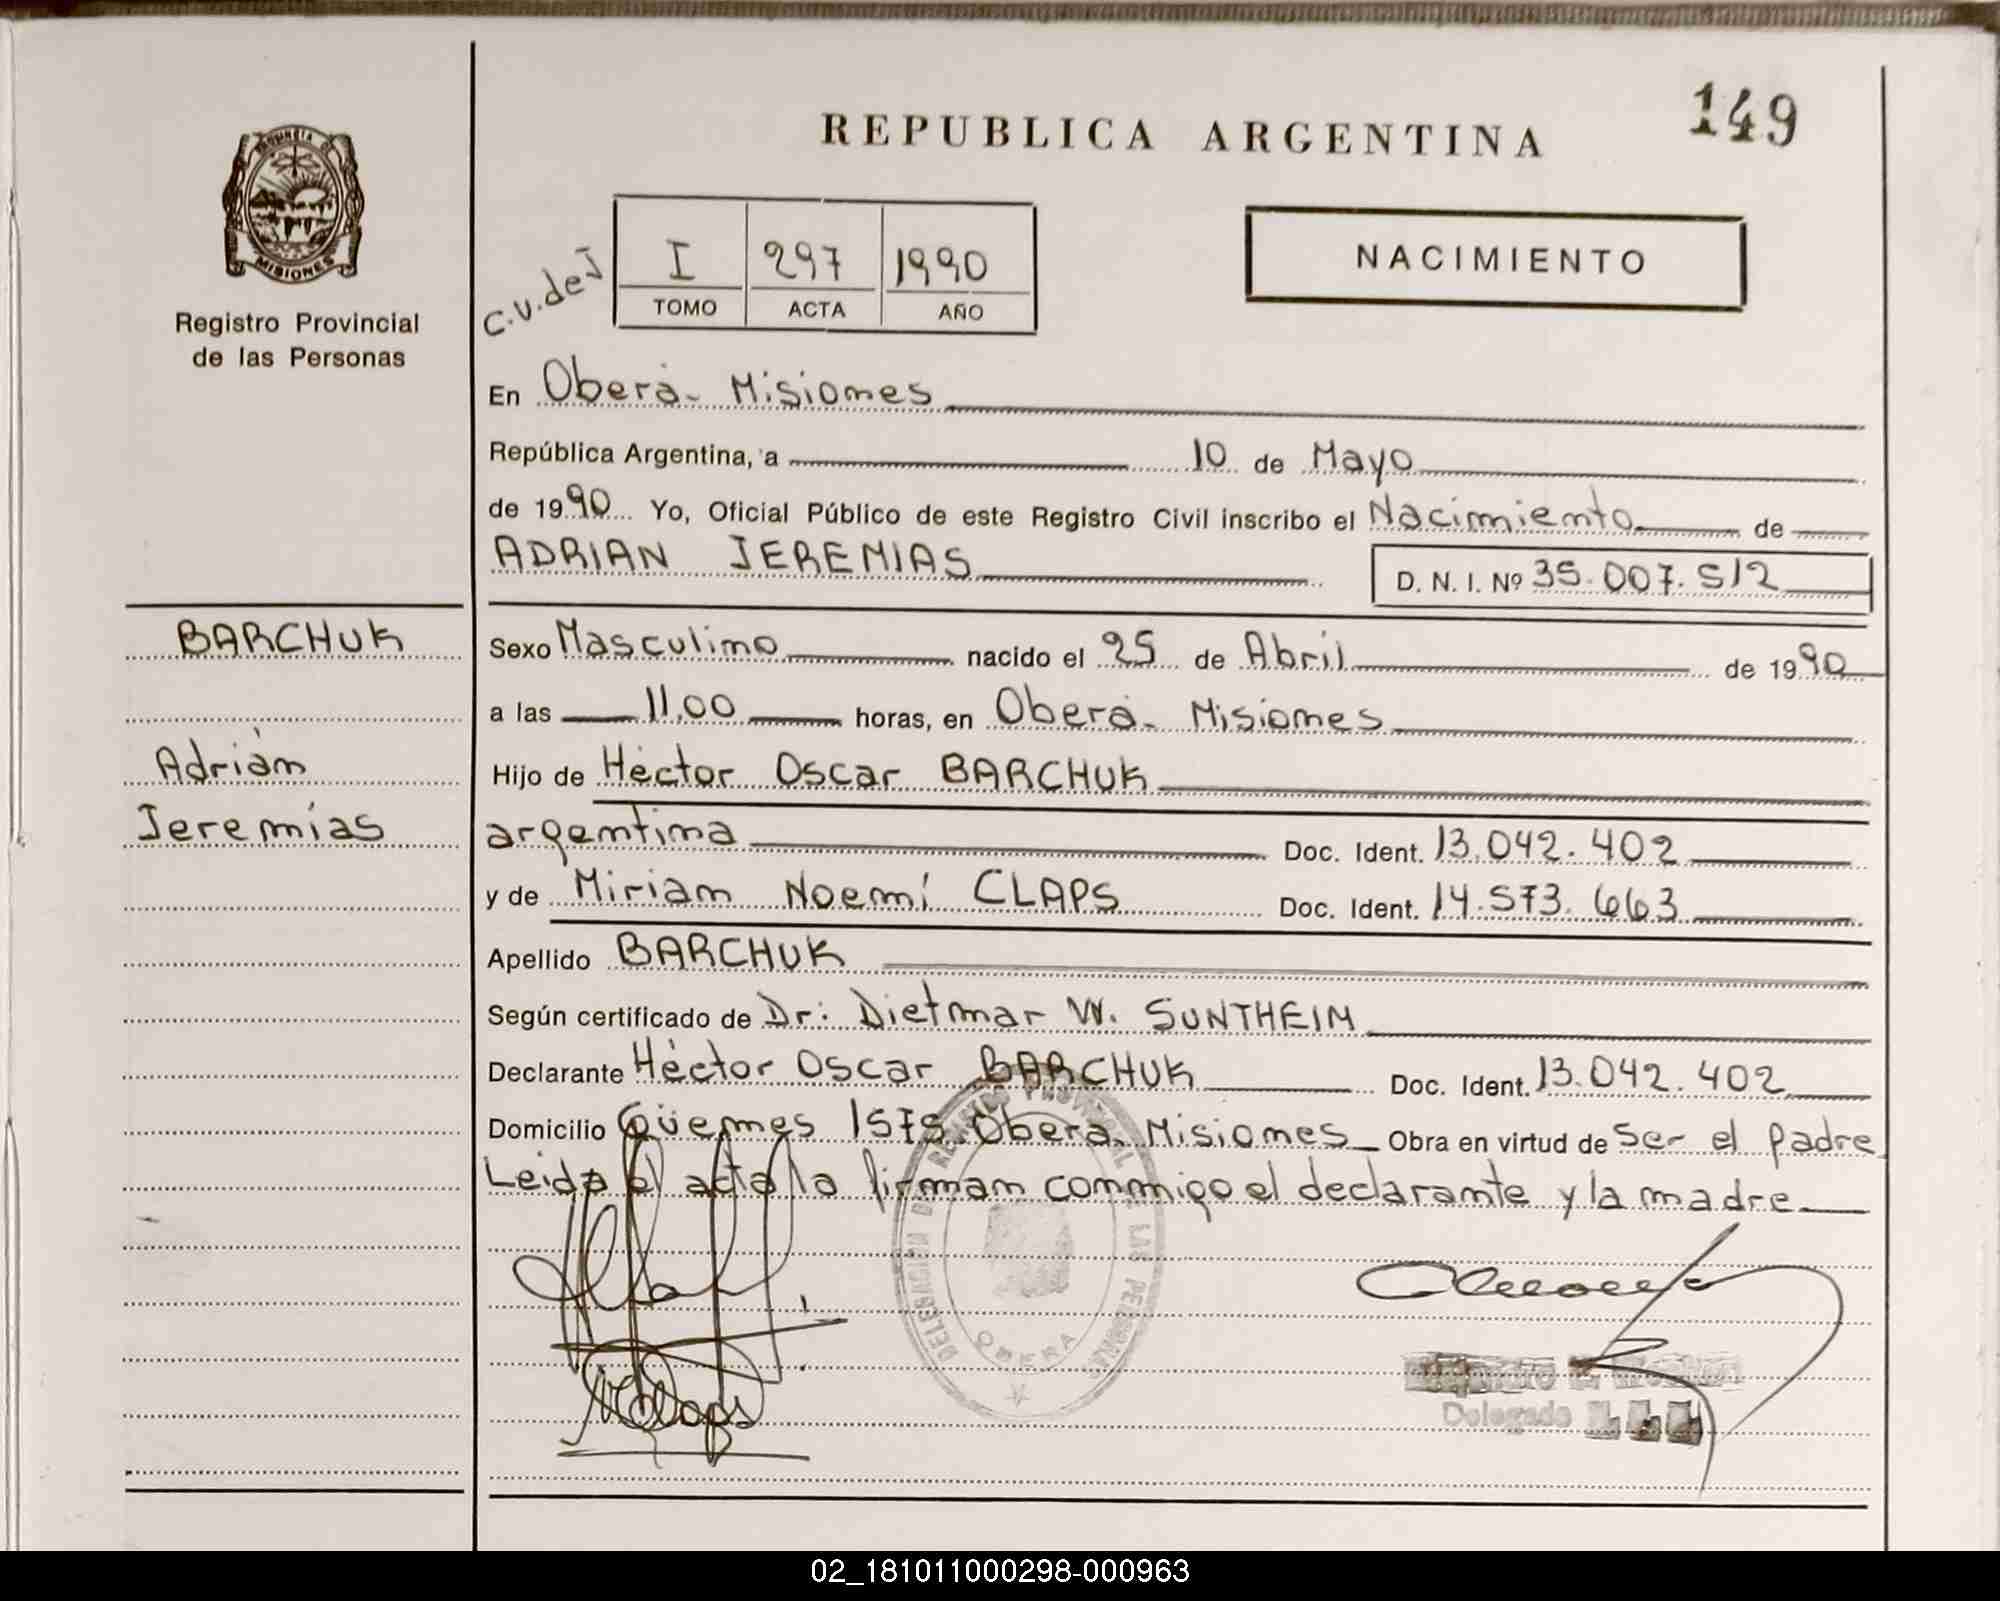 149
REPUBLICA ARGENTINA
PROVINCIA D
MISIONES
Registro Provincial
de las Personas
C.V. de J
I 297 1990
TOMO ACTA AÑO
NACIMIENTO
En Oberá - Misiones
República Argentina, a 10 de Mayo
de 1990 Yo, Oficial Público de este Registro Civil inscribo el Nacimiento de
ADRIAN JEREMIAS D. N. I. Nº 35.007.512
BARCHUK
Adrián
Jeremías
Sexo Masculino nacido el 25 de Abril de 1990
a las 11,00 horas, en Oberá - Misiones
Hijo de Héctor Oscar BARCHUK
argentina Doc. Ident. 13.042.402
y de Miriam Noemí CLAPS Doc. Ident. 14.573.663
Apellido BARCHUK
Según certificado de Dr: Dietmar W. SUNTHEIM
Declarante Héctor Oscar BARCHUK Doc. Ident. 13.042.402
Domicilio Güemes 1575 Oberá Misiones Obra en virtud de ser el padre
Leida el acta la firman conmigo el declarante y la madre
DELEGACION DEL REGISTRO PROVINCIAL DE LAS PERSONAS
OBERA
MClaps
Delegado
02_181011000298-000963